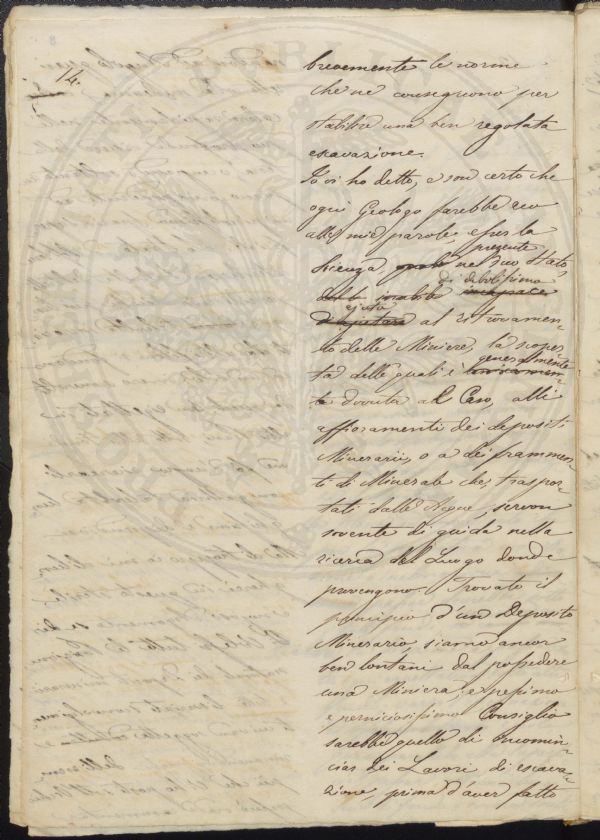 14.
brevemente le norme
che ne conseguono per
stabilire una ben regolata
escavazione.
Io vi ho detto, e son certo che
ogni Geologo farebbe eco
alle mie parole, esser la
presente
Scienza, nel suo stato,
di debolissimo
sarebbe incapace
ajuto
d'ajutare al ritrovamen-
to delle Miniere, la scoper-
generalmente
ta delle quali è
te dovuta al Caso, alli
affioramenti dei depositi
Minerarii, o a dei frammen-
ti di Minerale che, traspor-
tati dalle Acque, servon
sovente di guida nella
ricerca del Luogo donde
provengono. Trovato il
principio d'un Deposito
Minerario, siamo ancor
ben lontani dal possedere
una Miniera; e pessimo
e perniciosissimo Consiglio
sarebbe quello di incomin-
ciar dei Lavori di escava-
zione, prima d'aver fatto